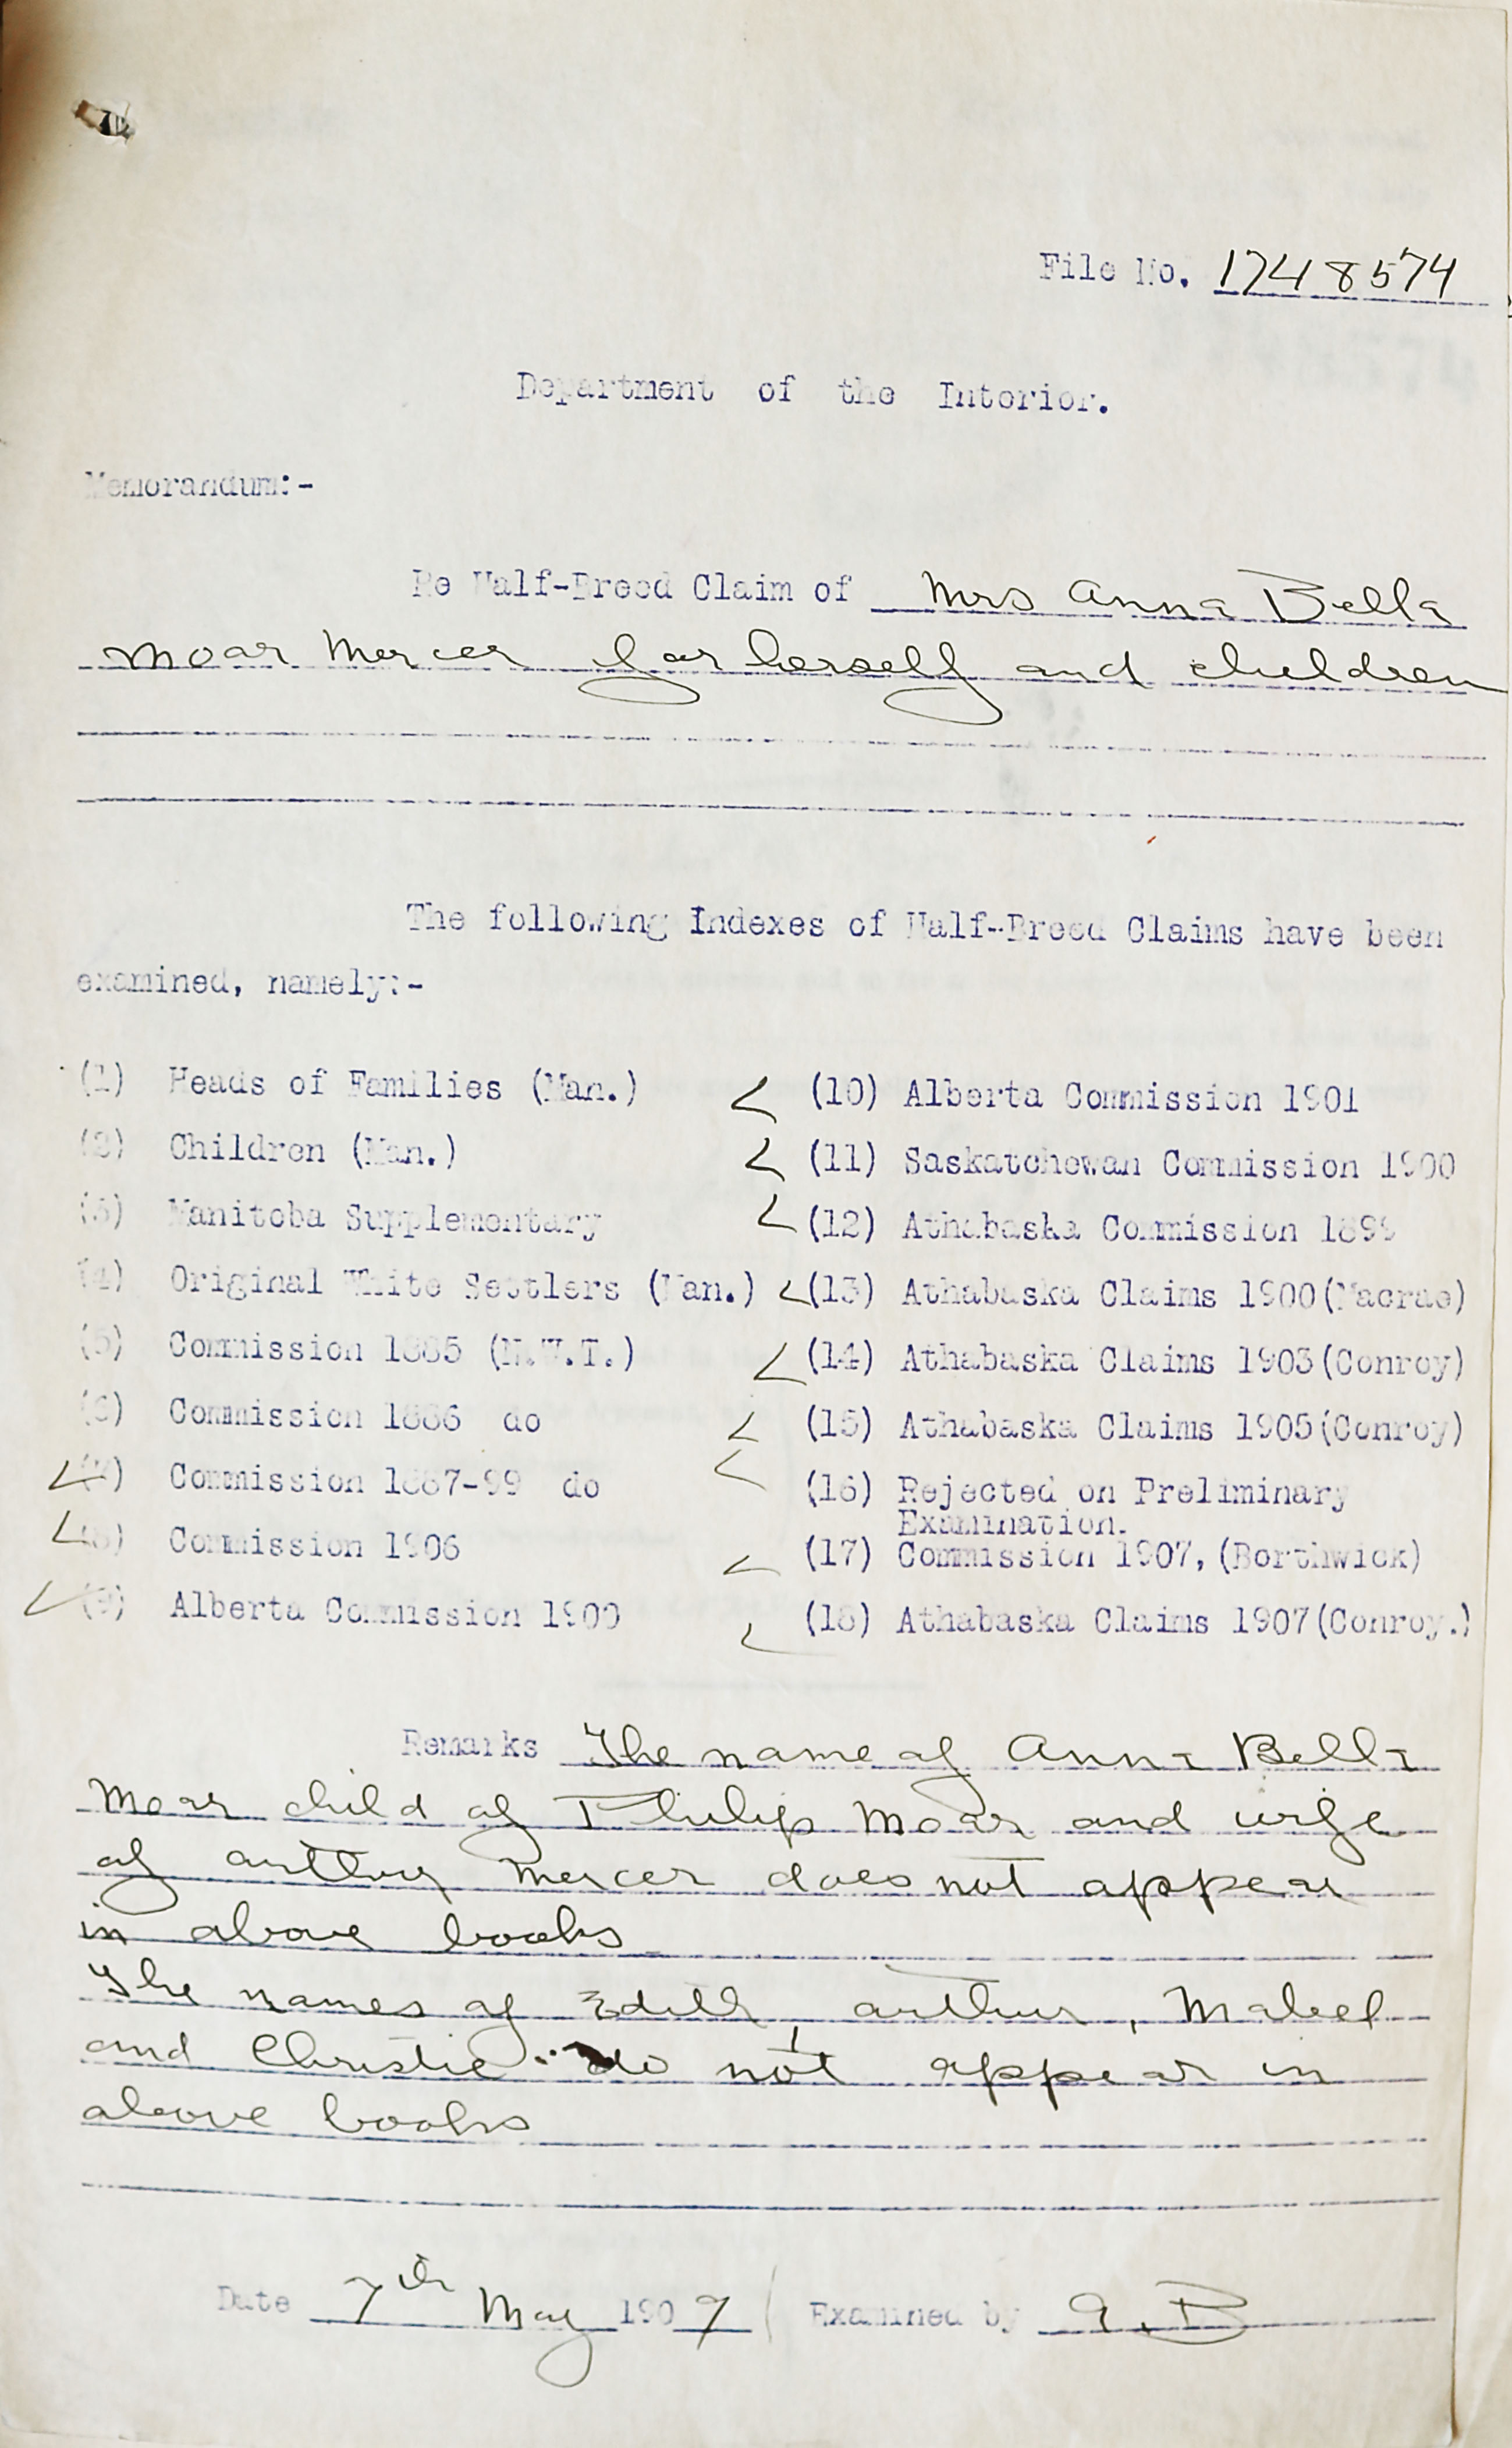 File No. 1748574
Department of the Interior.
Memorandum:-
Re Half-Breed Claim of Mrs Anna Bella
Moar Mercer for herself and children
The following Indexes of Half-Breed Claims have been
examined, namely:-
(1) Heads of Families (Man.)
(2) Children (Man.)
(3) Manitoba Supplementary
(4) Original White Settlers (Man.)
(5) Commission 1885 (N.W.T.)
(6) Commission 1886 do
(7) Commission 1887-99 do
(8) Commission 1906
(9) Alberta Commission 1900
(10) Alberta Commission 1901
(11) Saskatchewan Commission 1900
(12) Athabaska Commission 1899
(13) Athabaska Claims 1900(Macrae)
(14) Athabaska Claims 1903(Conroy)
(15) Athabaska Claims 1905(Conroy)
(16) Rejected on Preliminary
Examination.
(17) Commission 1907,(Borthwick)
(18) Athabaska Claims 1907(Conroy.)
Remarks The name of Anna Bella
Moar child of Philip Moar and wife
of Arthur Mercer does not appear
in above books
The names of Edith, Arthur, Mabel
and Christie do not appear in
above books
Date 7th May 1909 Examined by A.B